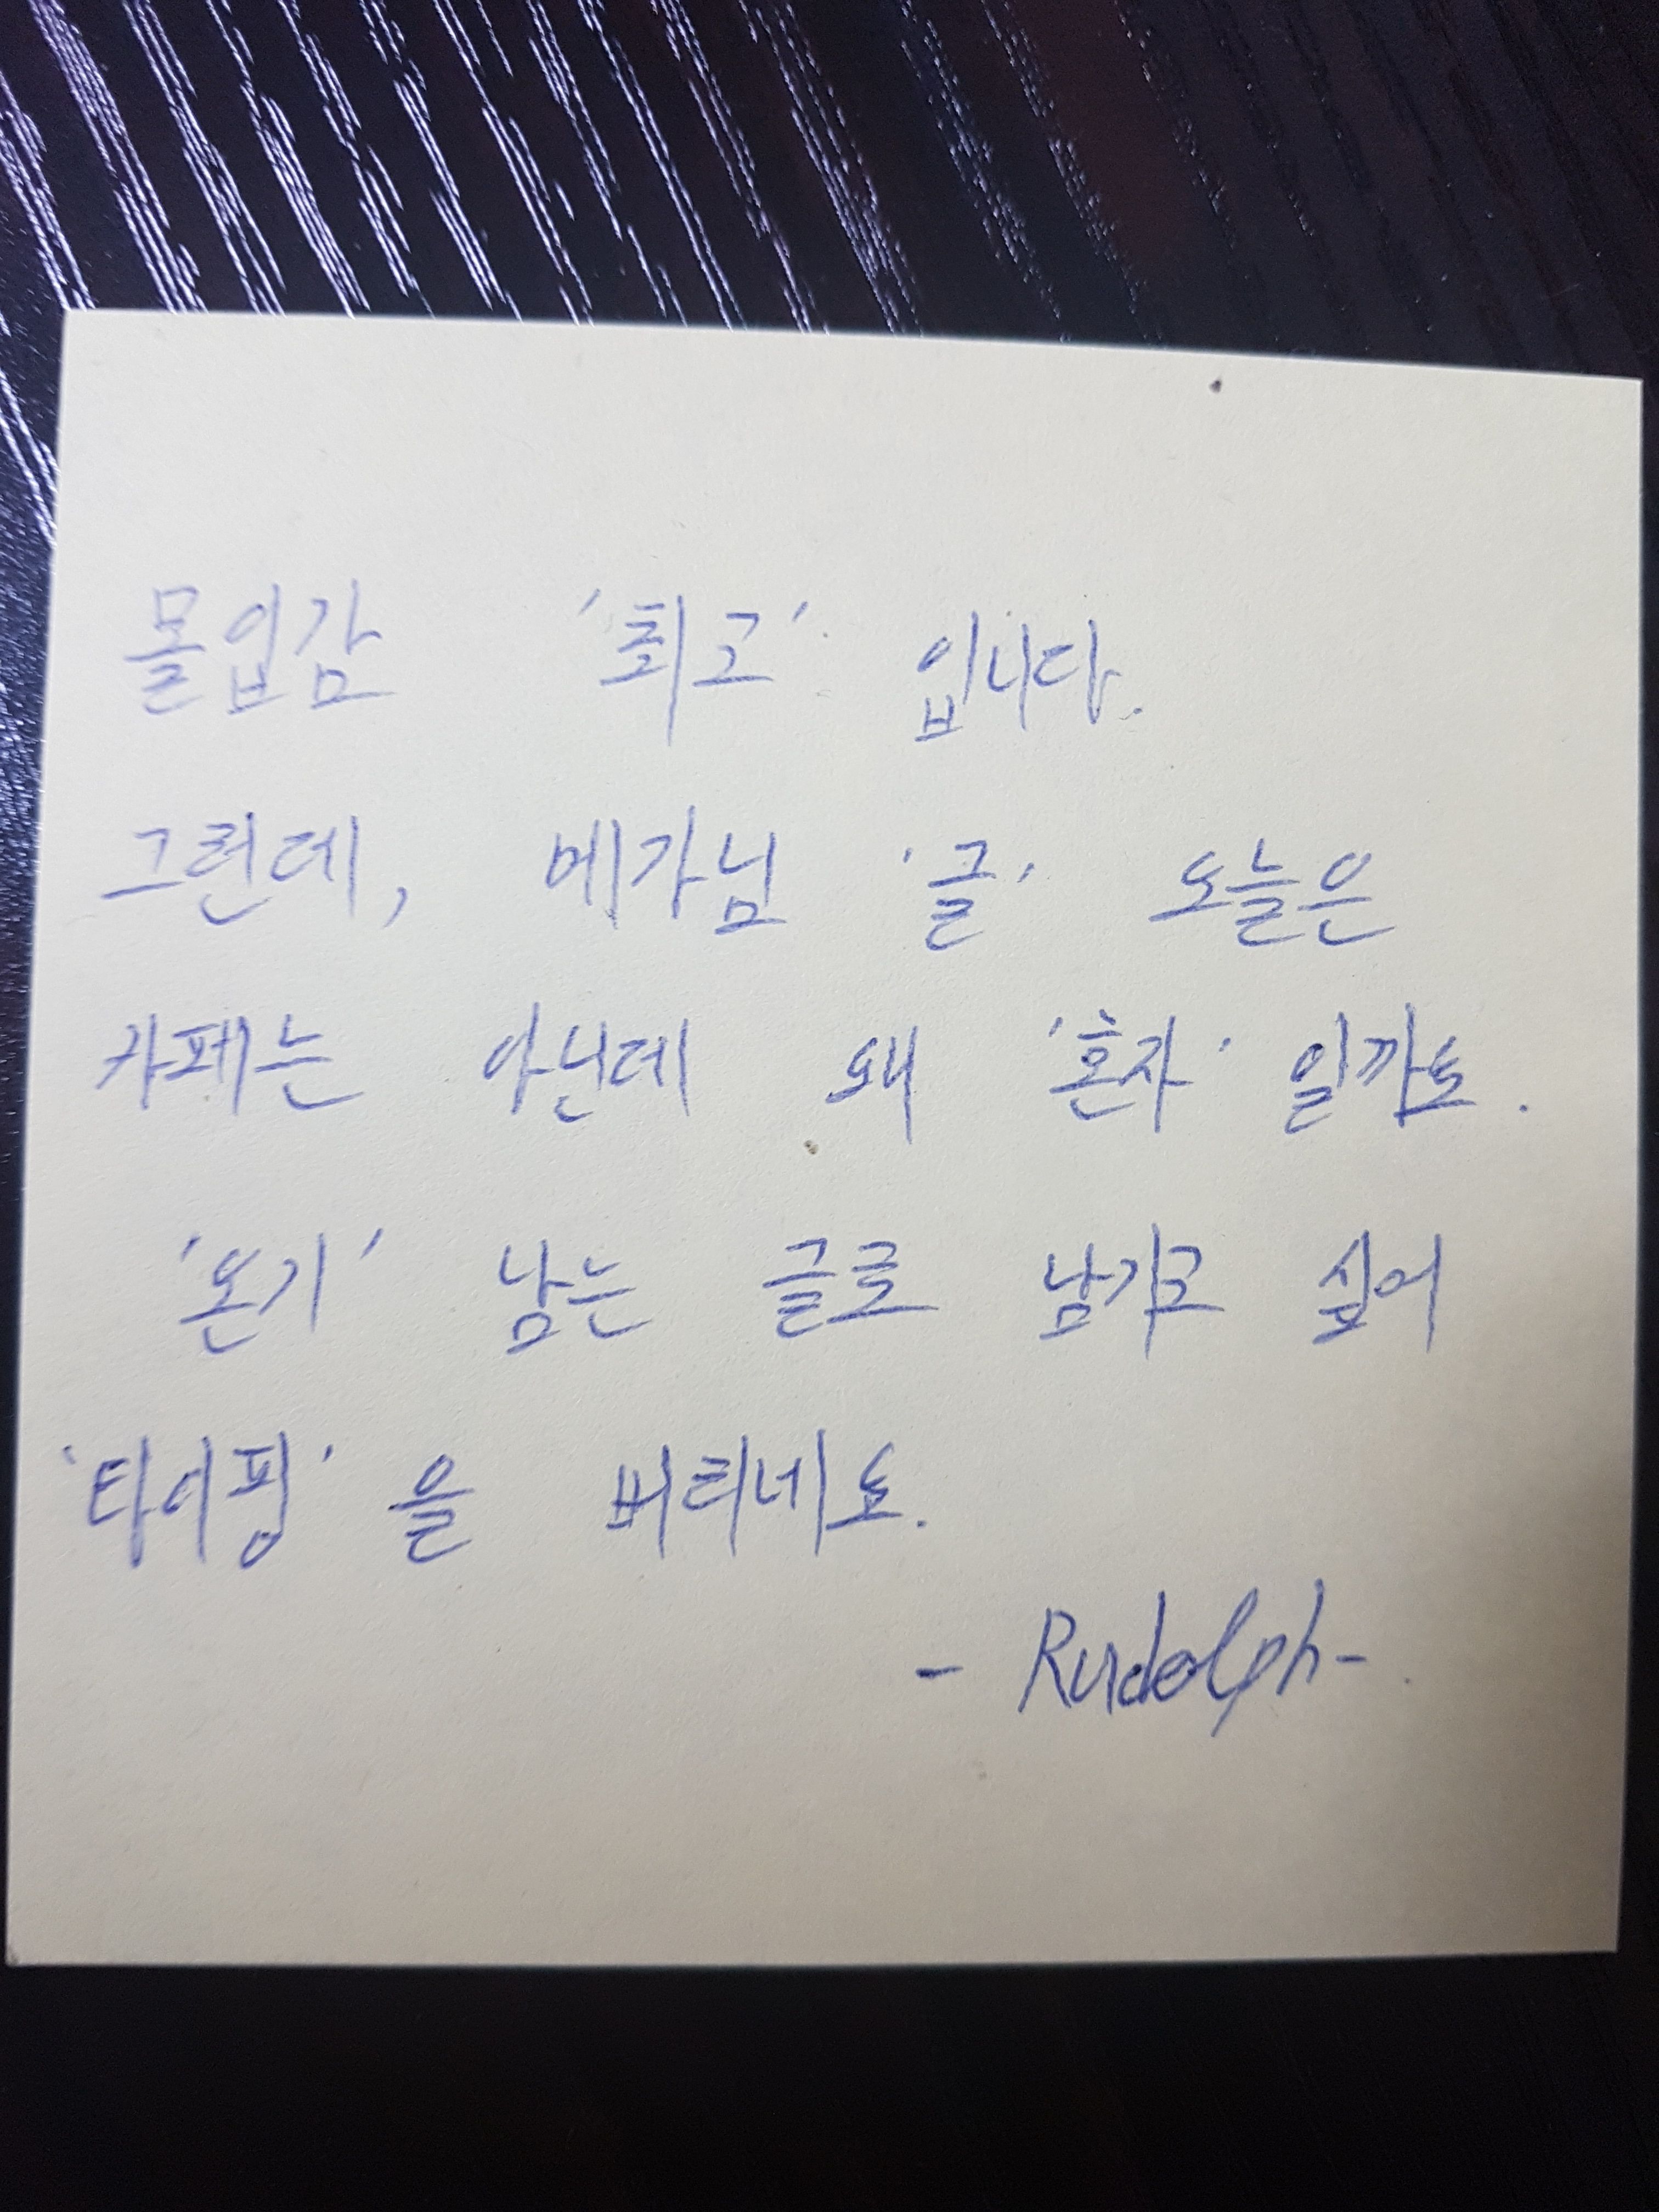 몰입감 '최고' 입니다.
그런데, 메가님 '글' 오늘은
카페는 아닌데 왜 '혼자' 일까요.
'온기' 남는 글로 남기고 싶어
'타이핑' 을 버티네요.
- Rudolph-